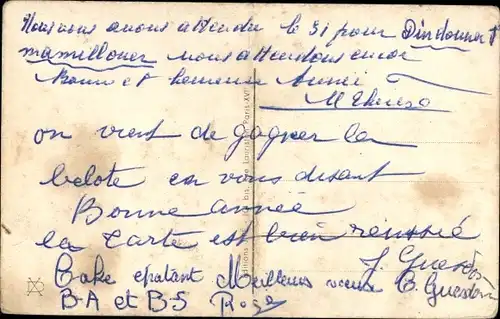 Nous vous avons attendu le 31 pour Dindonner et
mamillouer nous attendons encor
Bonne et heureuse Année
M Thérèse
on vient de gagner la
belote en vous disant
Bonne année
la Carte est bien réussie
J. Guesdon
épatant Meilleurs vœux B. Guesdon
B-A et B-S Roger
Paris-XVII